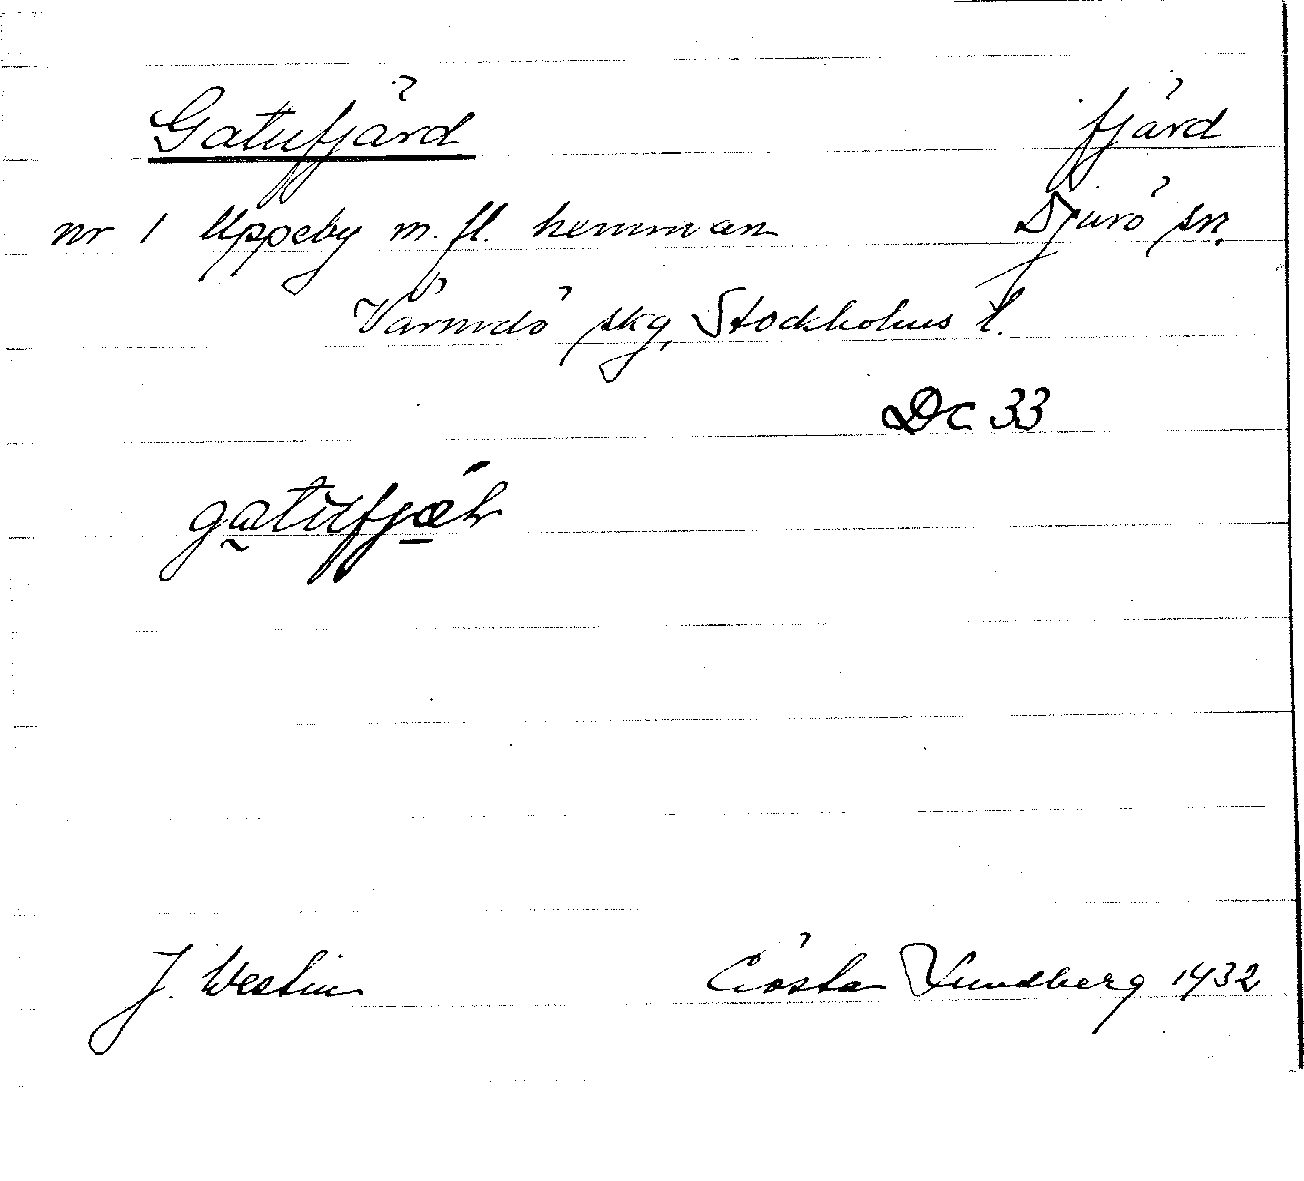 Gatufjärd fjärd
nr 1 Uppeby m. fl. hemman Djurö sn.
Värmdö skg, Stockholms l.
Dc 33
J. Westin Gösta Lundberg 1932